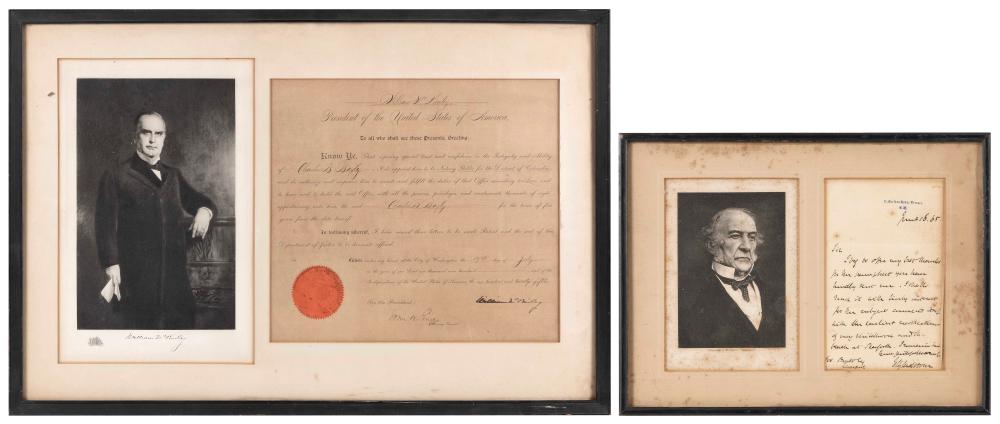 William McKinley
William McKinley
President of the United States of America,
To all who shall see these Presents, Greeting:
Know Ye, That reposing special trust and confidence in the Integrity and Ability
of Charles B. I do appoint him to be Notary Public for the District of Columbia
and do authorize and empower him to execute and fulfil the duties of that Office according to law, and
to have and to hold the said Office, with all the powers, privileges, and emoluments thereunto of right
appertaining unto him, the said Charles B. for the term of five
years from the date hereof.
In testimony whereof, I have caused these letters to be made Patent and the seal of the
Department of Justice to be hereunto affixed.
Given under my hand, at the City of Washington, the day of July
in the year of our Lord one thousand and of the
Independence of the United States of America the one hundred and twenty
By the President:
William McKinley
Attorney General.
June 18. 65.
Sir
I beg to offer my best thanks
for the pamphlet you have
kindly sent me. I shall
read it with lively interest
for the subject connected
with the earliest recollections
of my childhood and the
beach at
W E Gladstone